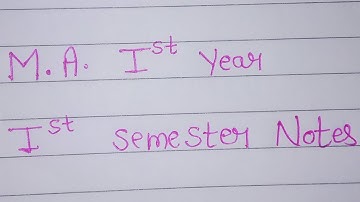 M.A. Ist Year
Ist Semester Notes